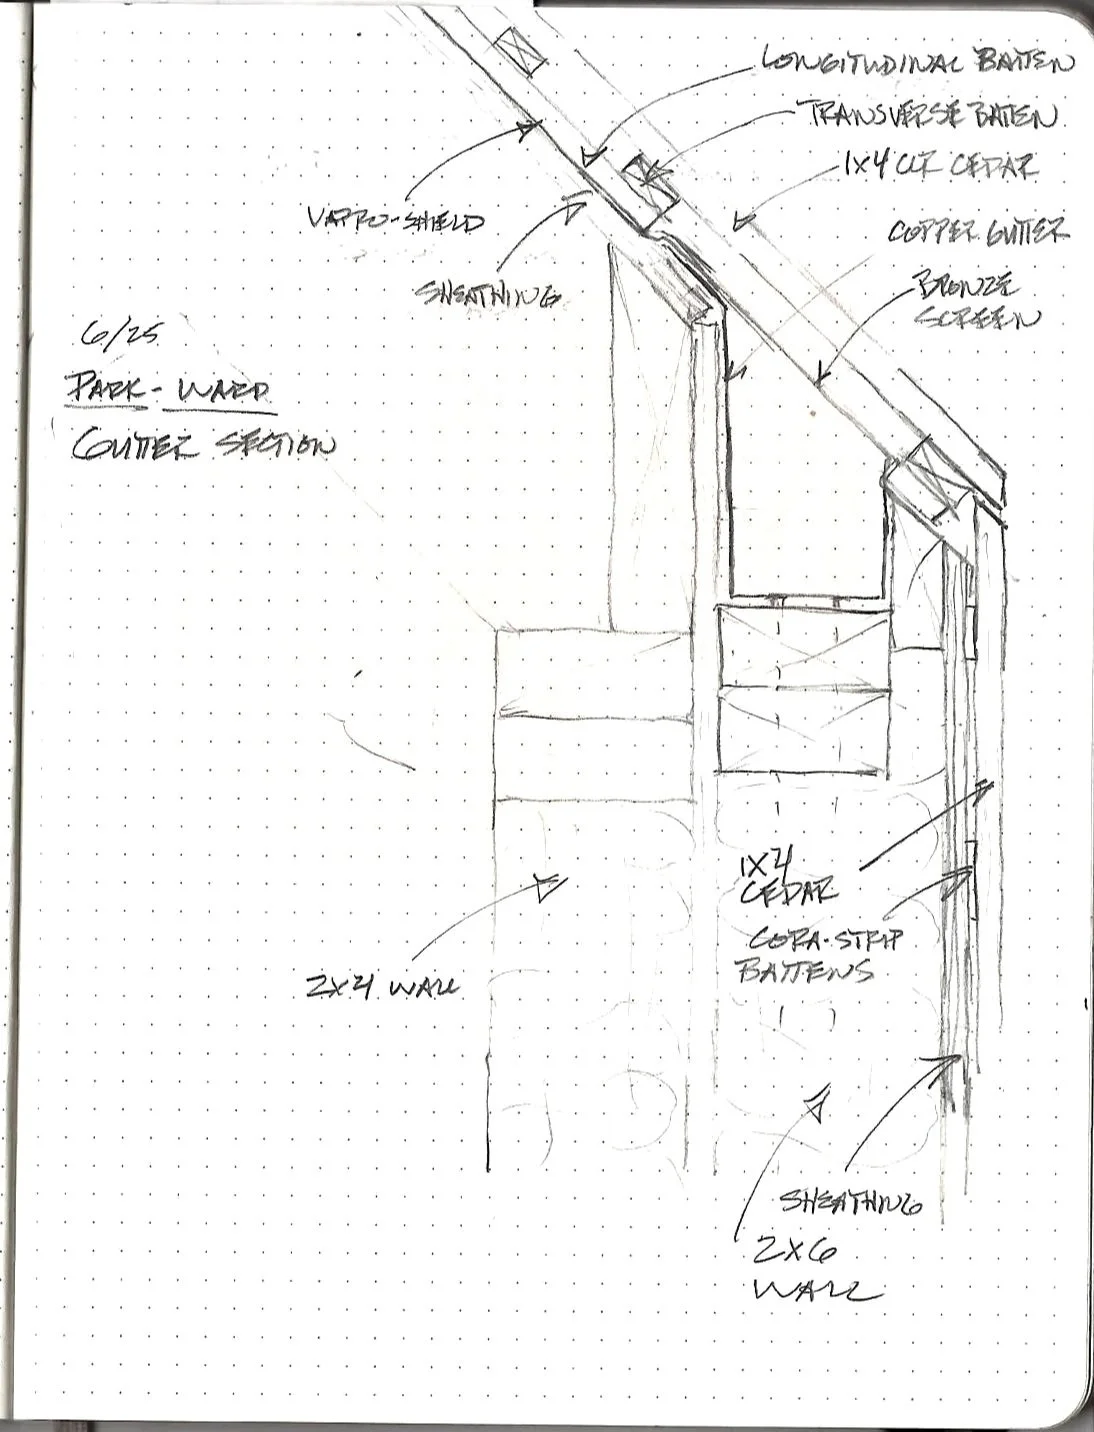 LONGITUDINAL BATTEN
TRANSVERSE BATTEN
1X4 CLR CEDAR
COPPER GUTTER
BRONZE
SCREEN
VAPRO-SHIELD
SHEATHING
6/25
PARK-WARD
GUTTER SECTION
1X4
CEDAR
CORA-STRIP
BATTENS
2X4 WALL
SHEATHING
2X6
WALL